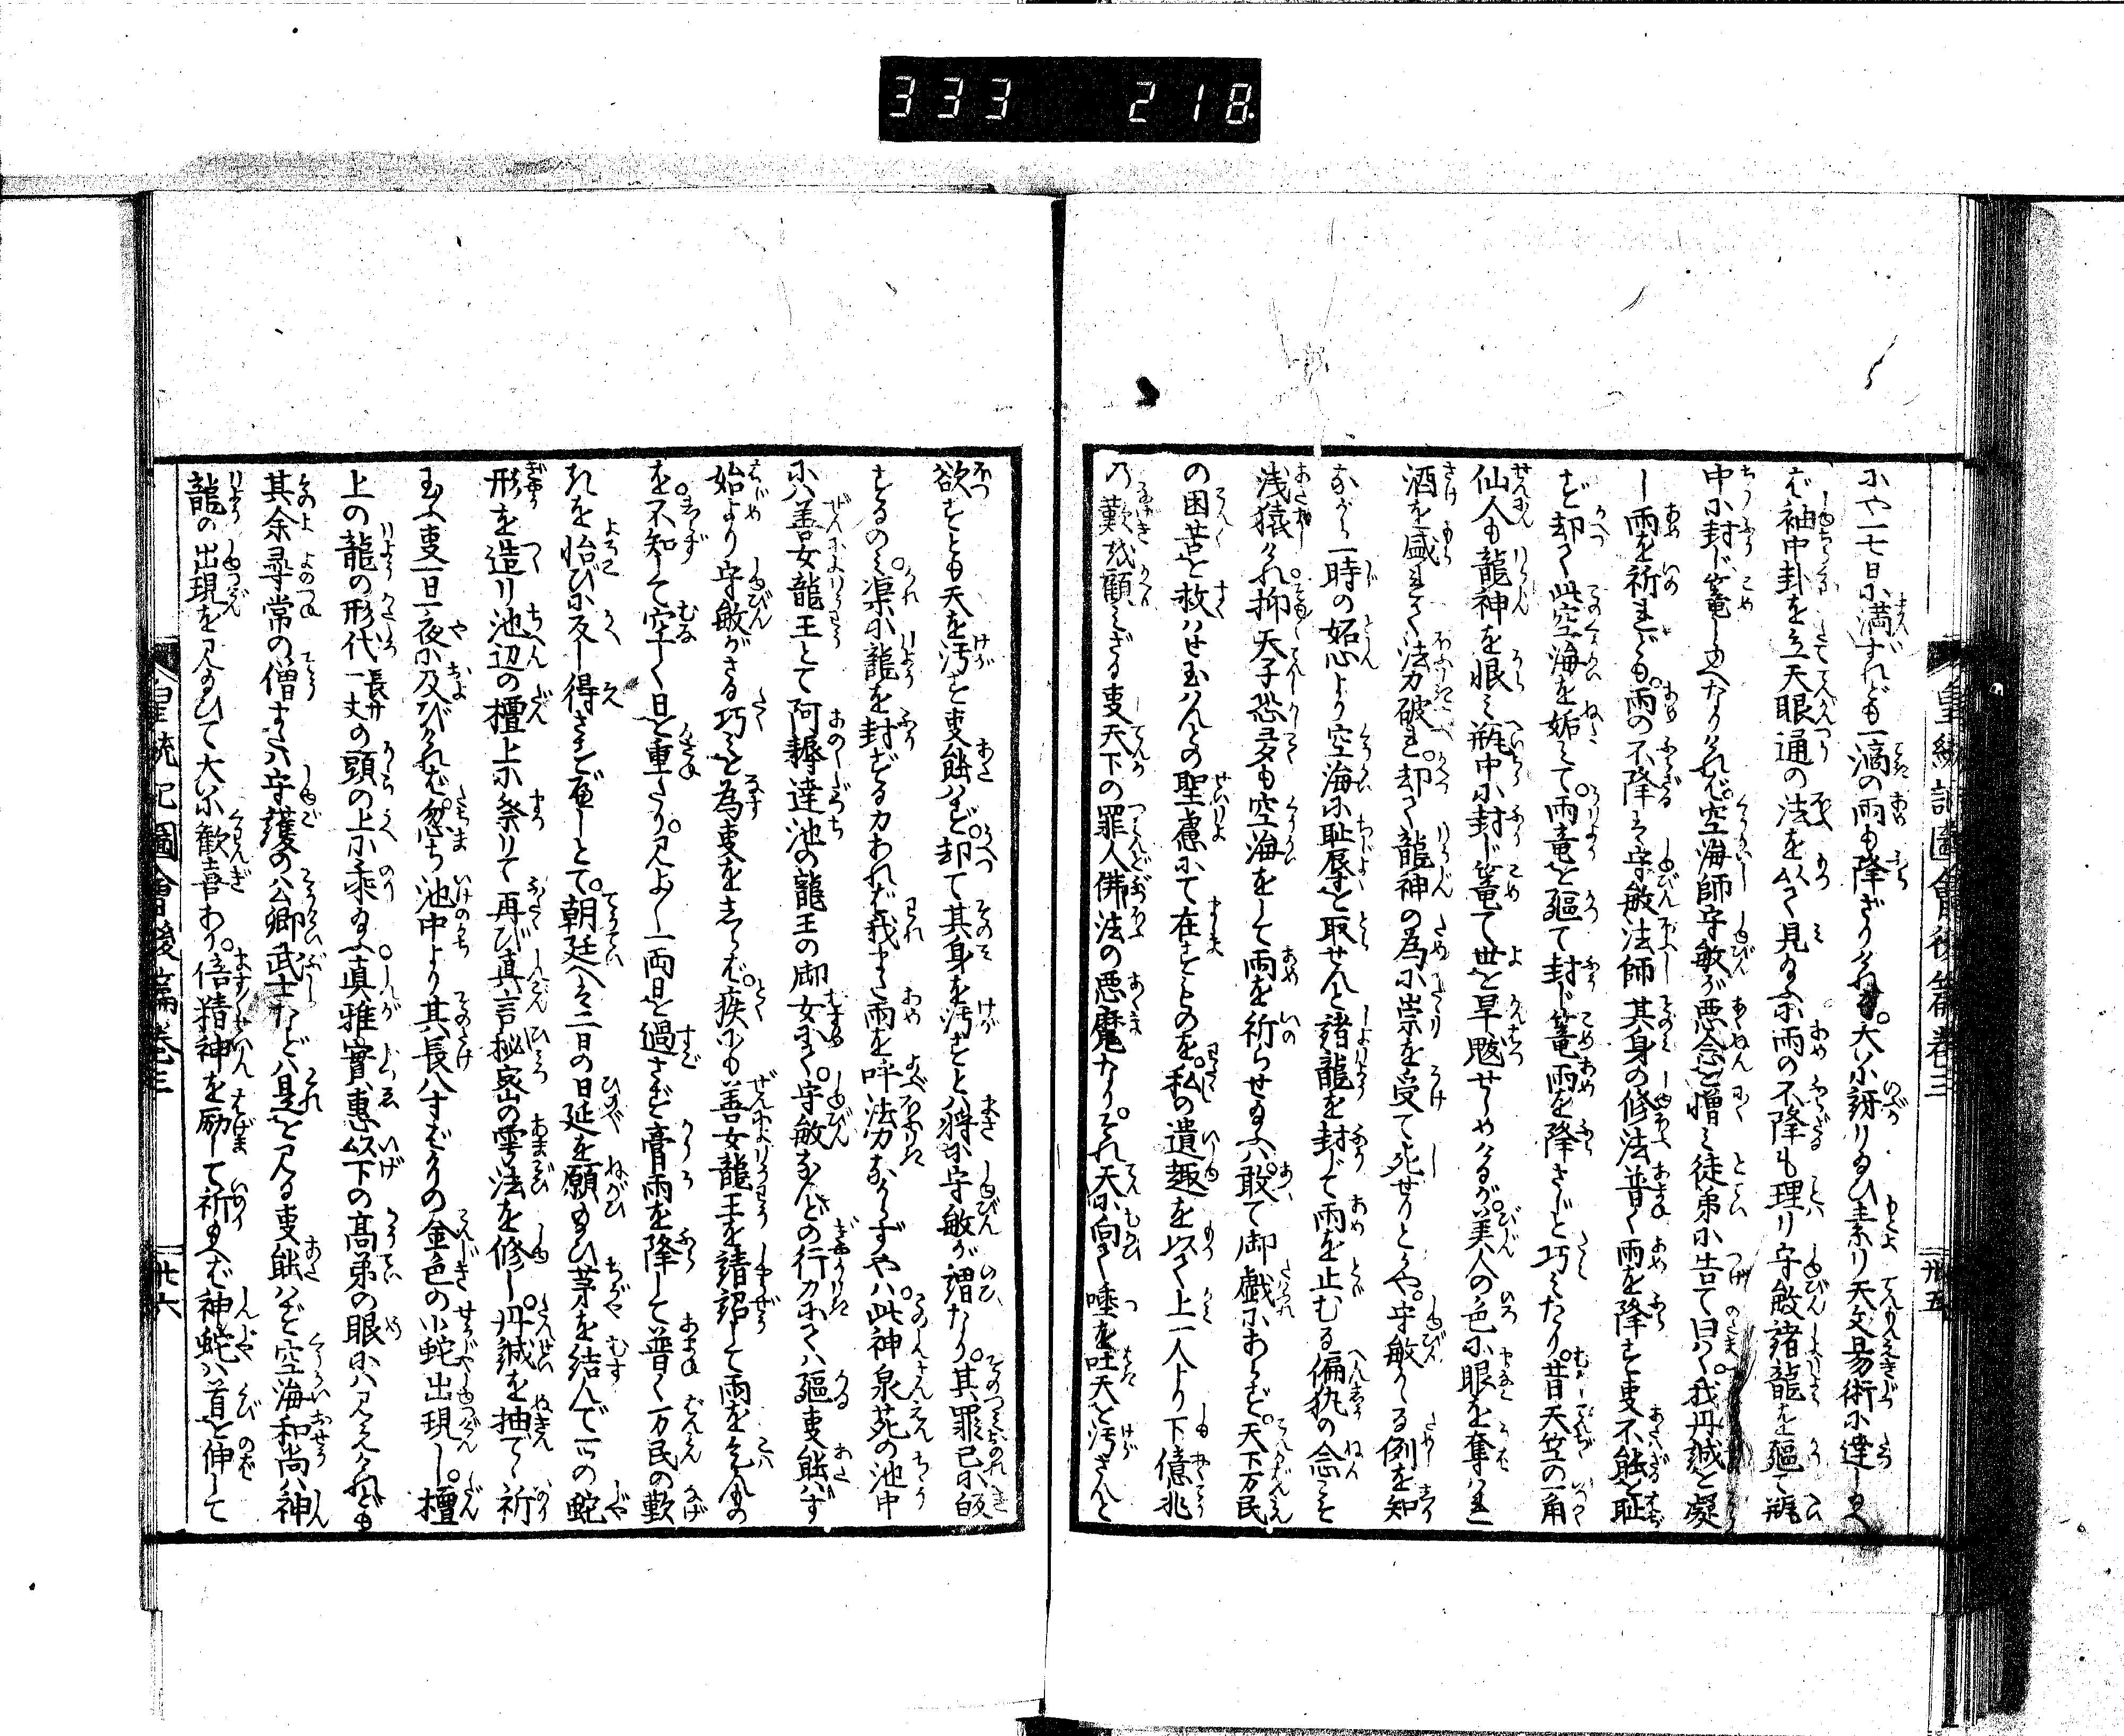 333 218
皇統記圖會後篇卷三
廿五
にや一七日に満ずれども一滴の雨も降ざりければ。大いに訝り給ひ素り天文易術に達し給へ
ば袖中卦を立天眼通の法を以て見給ふに雨の不降も理り守敏諸龍を駈て瓶
中に封じ篭しゆへなりければ。空海師守敏が悪念を憎み徒弟に告て曰く。我丹誠を凝
し雨を祈れども。雨の不降は守敏法師其身の修法普く雨を降す事不能を耻
ず却て此空海を妬みて。雨竜を駈て封じ篭雨を降さじと巧みたり。昔天竺の一角
仙人も龍神を恨み瓶中に封じ篭て世を旱魃せしめけるが。美人の色に眼を奪はれ
酒を盛れて法力破れ。却て龍神の為に祟を受て死せりとかや。守敏かゝる例を知
ながら一時の妬心より空海に耻辱を取せんと諸龍を封じて雨を止むる偏執の念こそ
浅猿けれ。抑天子恐多も空海をして雨を祈らせ給ふは。敢て御戯にあらず。天下万民
の困苦を救はせ玉はんとの聖慮にて在すものを。私の遺趣を以て上一人より下億兆
乃歎を顧みざる事天下の罪人佛法の悪魔たり。それ天に向て唾を吐天を汚さんと
欲すとも天を汚す事能はず。却て其身を汚すとは將に守敏が謂たり。其罪己に皈
するのみ。渠に龍を封ずる力あれば我また雨を呼法力なからずや。此神泉苑の池中
には善女龍王とて阿耨達池の龍王の御女にて。守敏などの行力にては駈事能はず
始より守敏がさる巧みを為事をしらば。疾にも善女龍王を請招して雨をこふべきの
を不知して空しく日を重たり。見よ一両日を過さず膏雨を降して普く万民の歎
きを怡びに及し得さすべしとて。朝廷へは二日の日延を願給ひ茅を結んで一の蛇
形を造り池辺の檀上に祭りて再び真言秘密の雩法を修し。丹誠を抽て祈
玉ふ事一日一夜に及びければ。忽ち池中より其長八寸ばかりの金色の小蛇出現し。檀
上の龍の形代長サ一丈の頭の上に乗給ふ。真雅實惠以下の高弟の眼には見えけれども
其余尋常の僧または守護の公卿武士などは是を見る事能はず空海和尚は神
龍の出現を見給ひて大いに歓喜あり。倍精神を励して祈給へば神蛇は首を伸して
皇統記圖會後篇卷三
廿六